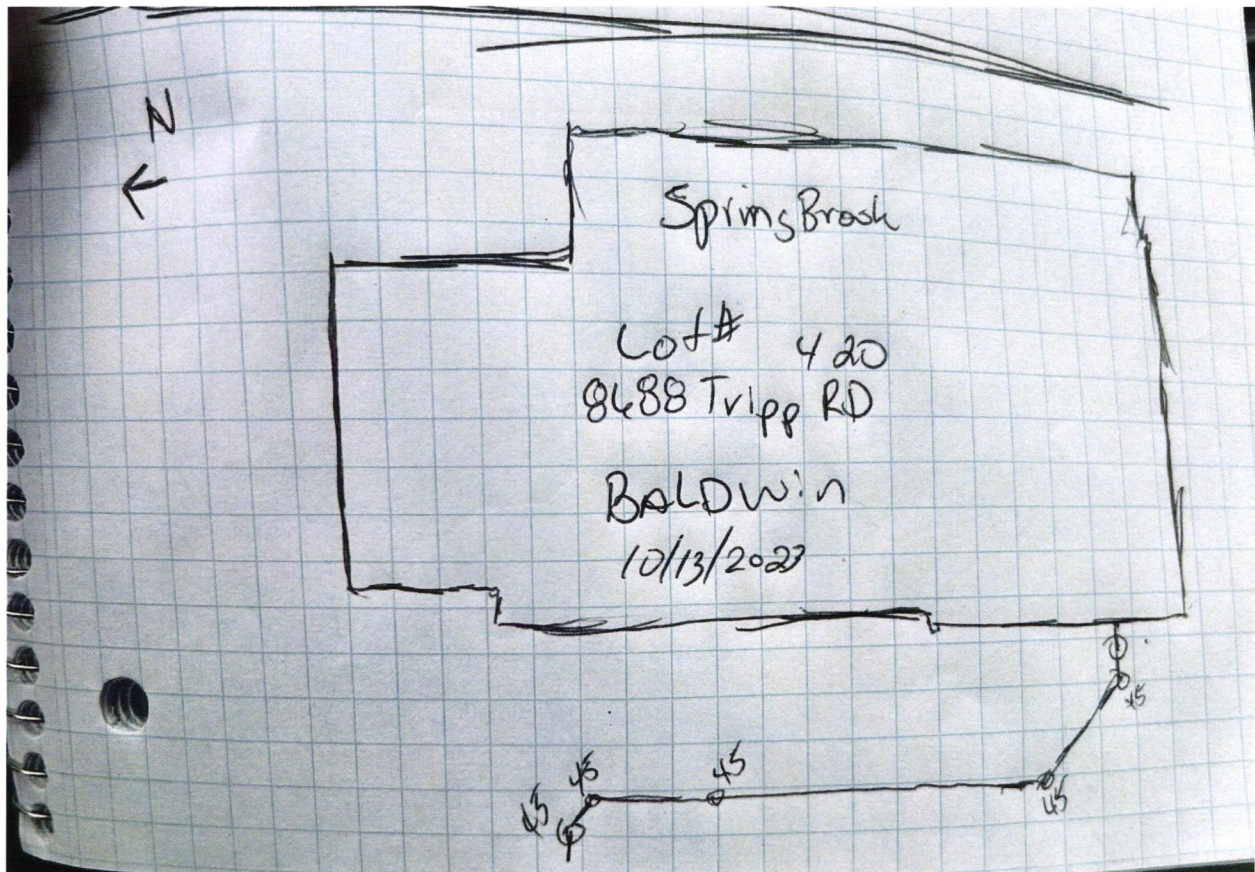 N
SpringBrook
Lot# 420
8688 Tripp RD
BALDWin
10/13/2023
45
45
45
45
45